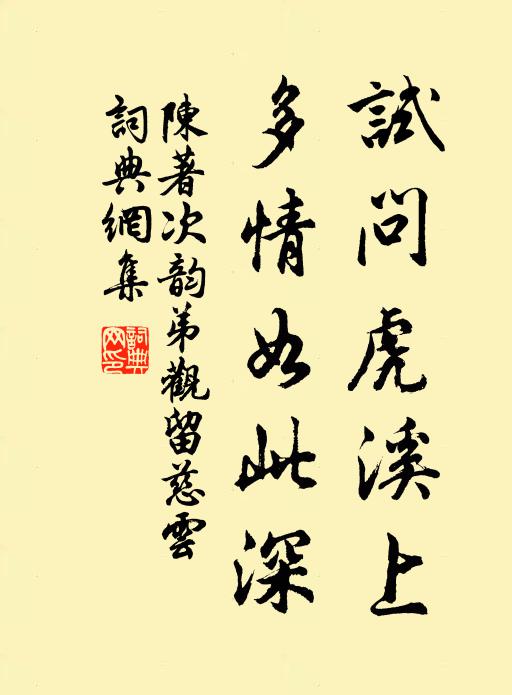 試問虎溪上
多情如此深
陳著次韵弟觀留慈雲
詞典網集
詞典網印